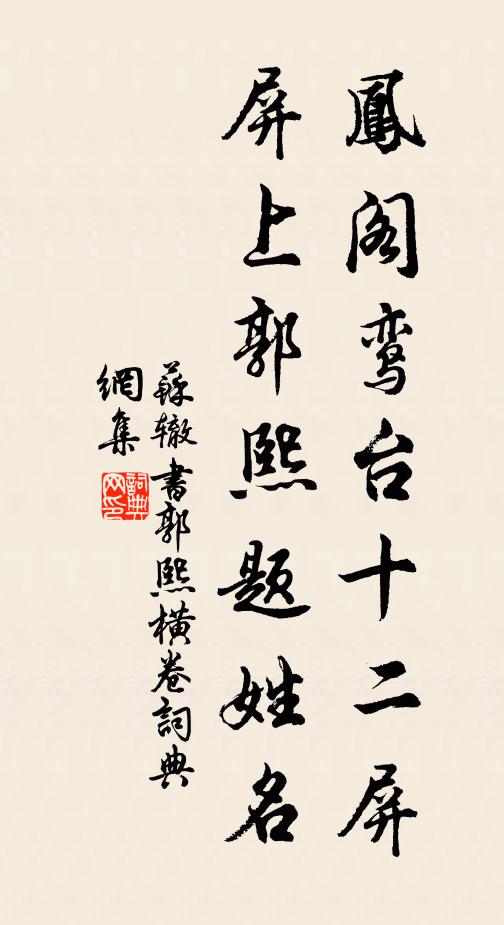 鳳阁鸾台十二屏
屏上郭熙题姓名
蘇辙書郭熙橫卷詞典
網集
詞典
网印